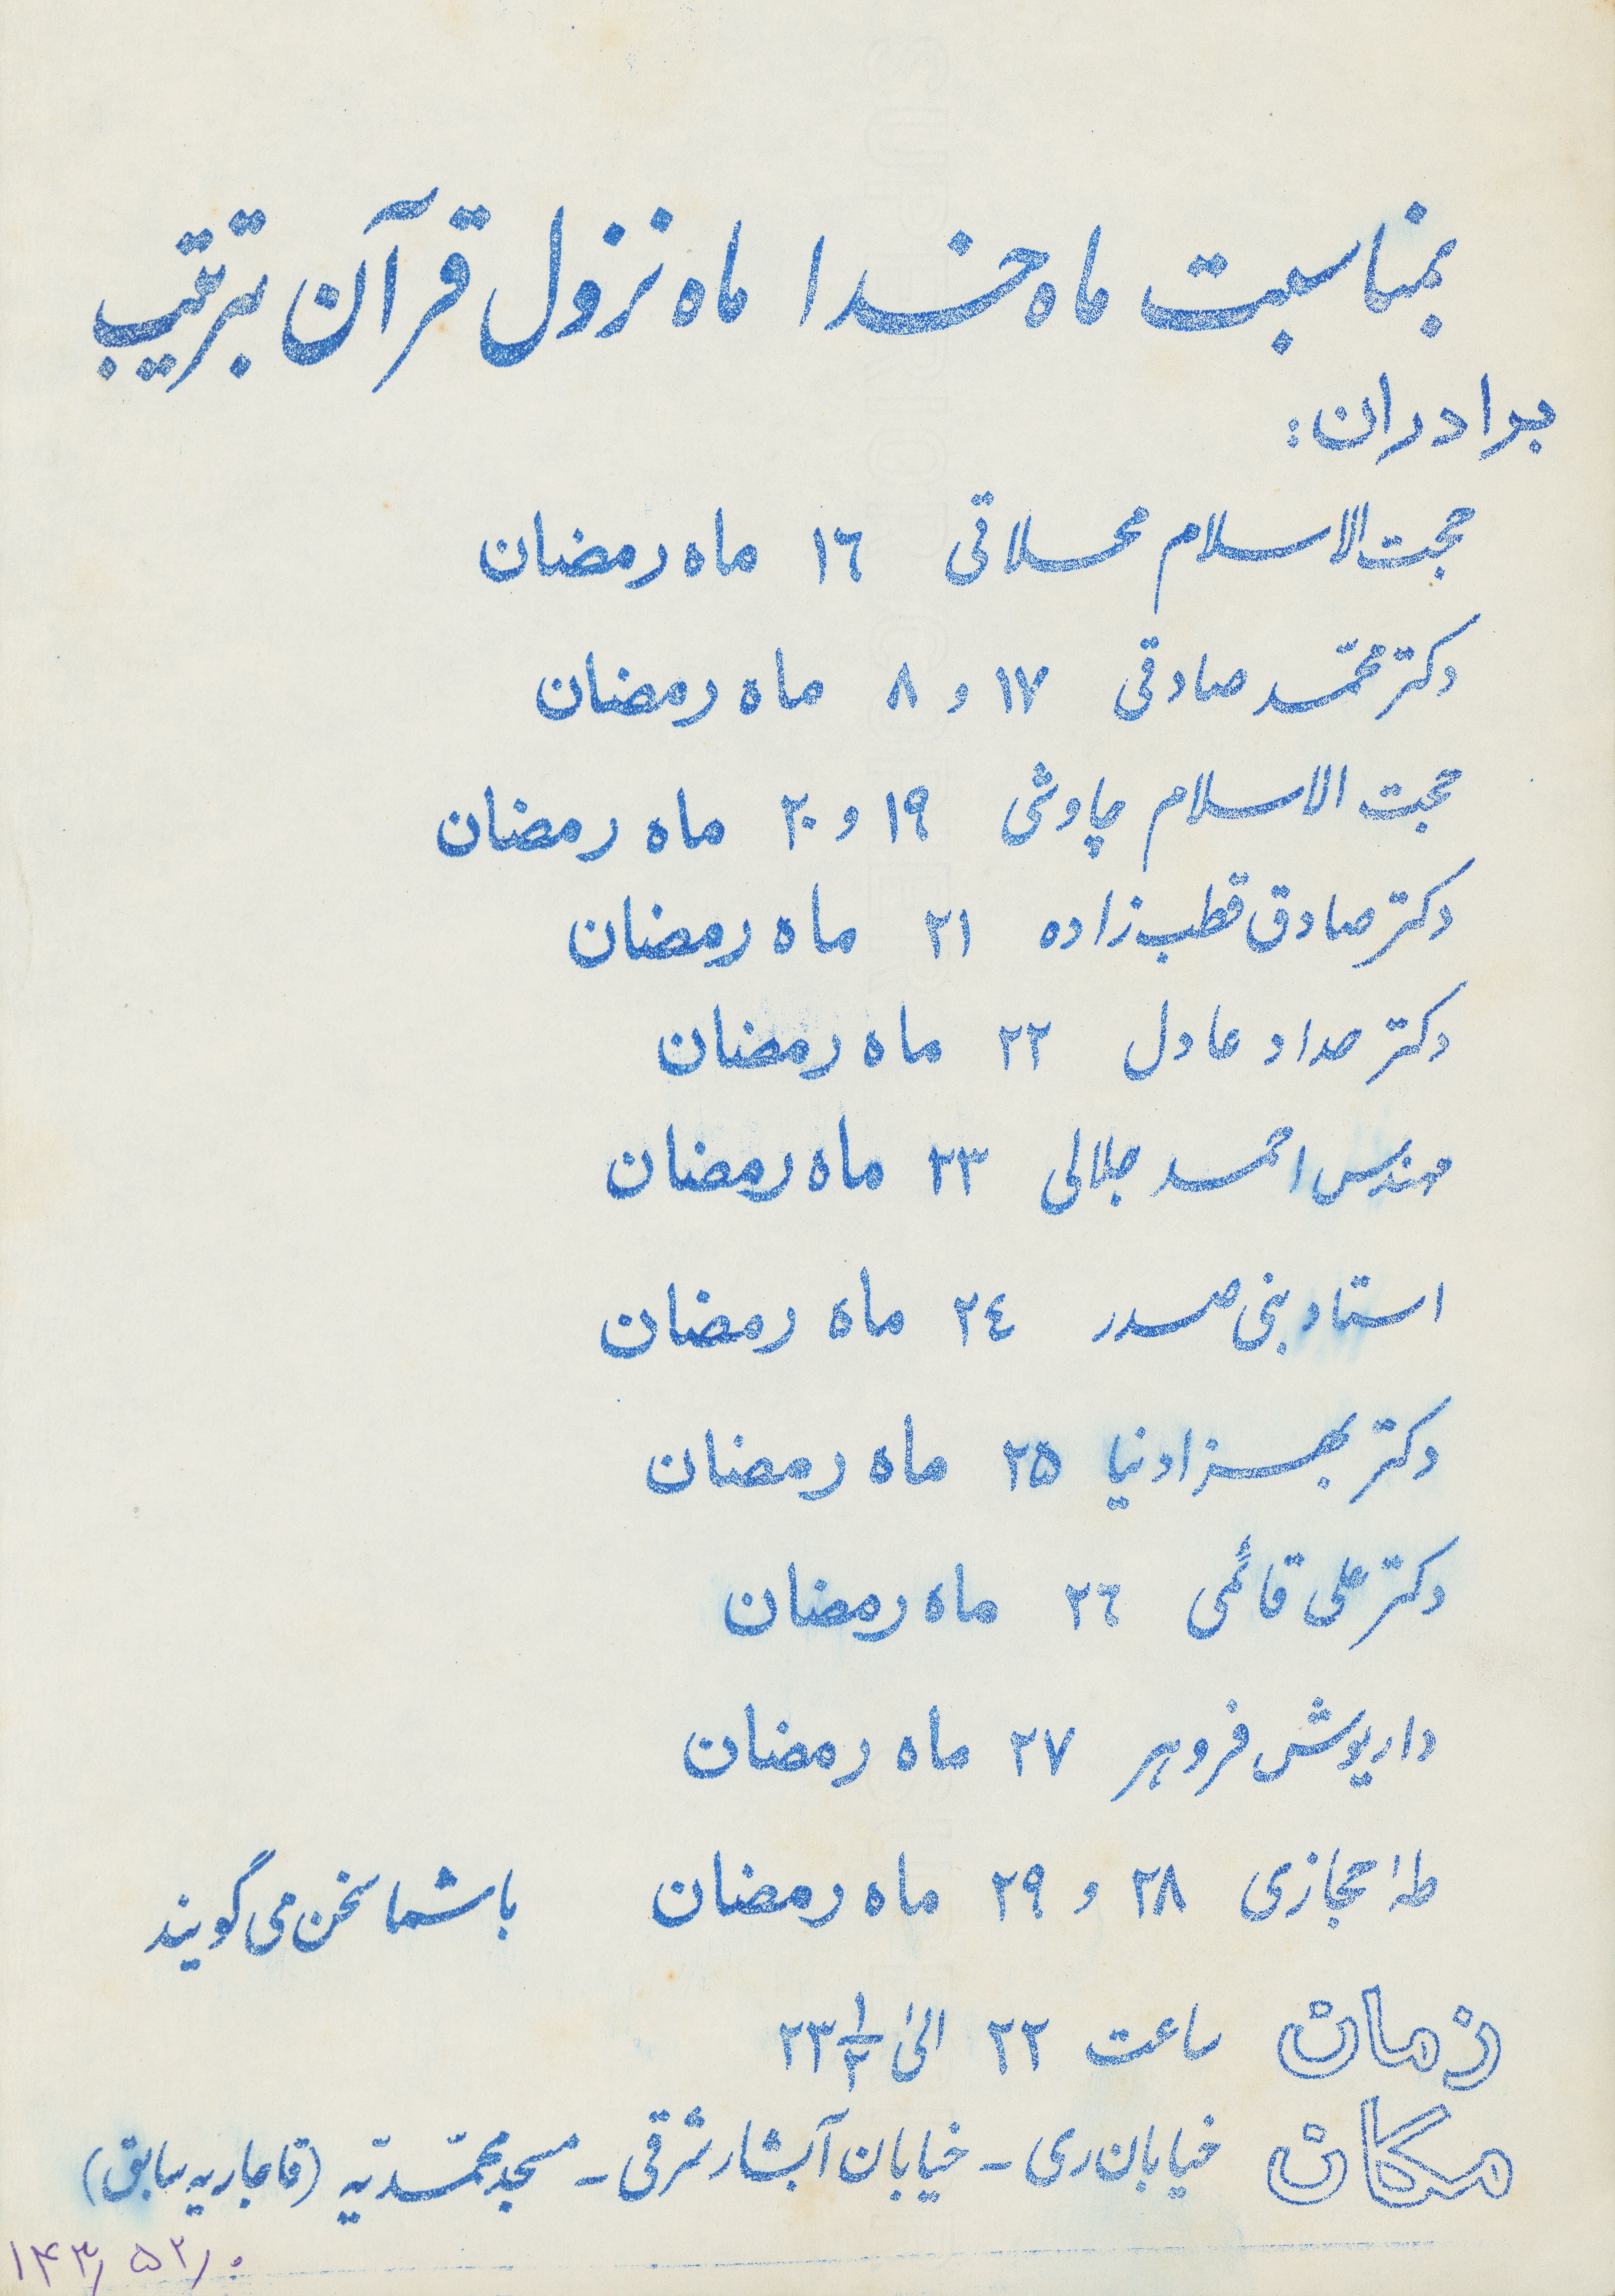 بمناسبت ماه خدا ماه نزول قرآن بترتیب
برادران:
حجت الاسلام محلاتی ١٦ ماه رمضان
دکتر محمّد صادقی ١٧ و ٨ ماه رمضان
حجت الاسلام چاوشی ١٩ و ٢٠ ماه رمضان
دکتر صادق قطب زاده ٢١ ماه رمضان
دکتر حداد عادل ٢٢ ماه رمضان
مهندس احمد جلالی ٢٣ ماه رمضان
استاد بنی صدر ٢٤ ماه رمضان
دکتر بهزادنیا ٢٥ ماه رمضان
دکتر علی قائمی ٢٦ ماه رمضان
داریوش فروهر ٢٧ ماه رمضان
طٰهٰ حجازی ٢٨ و ٢٩ ماه رمضان با شما سخن می گویند
زمان ساعت ٢٢ الیٰ ٢٣ ١/٢
مکان خیابان ری - خیابان آبشار شرقی - مسجد محمّدیّه (قاجاریه سابق)